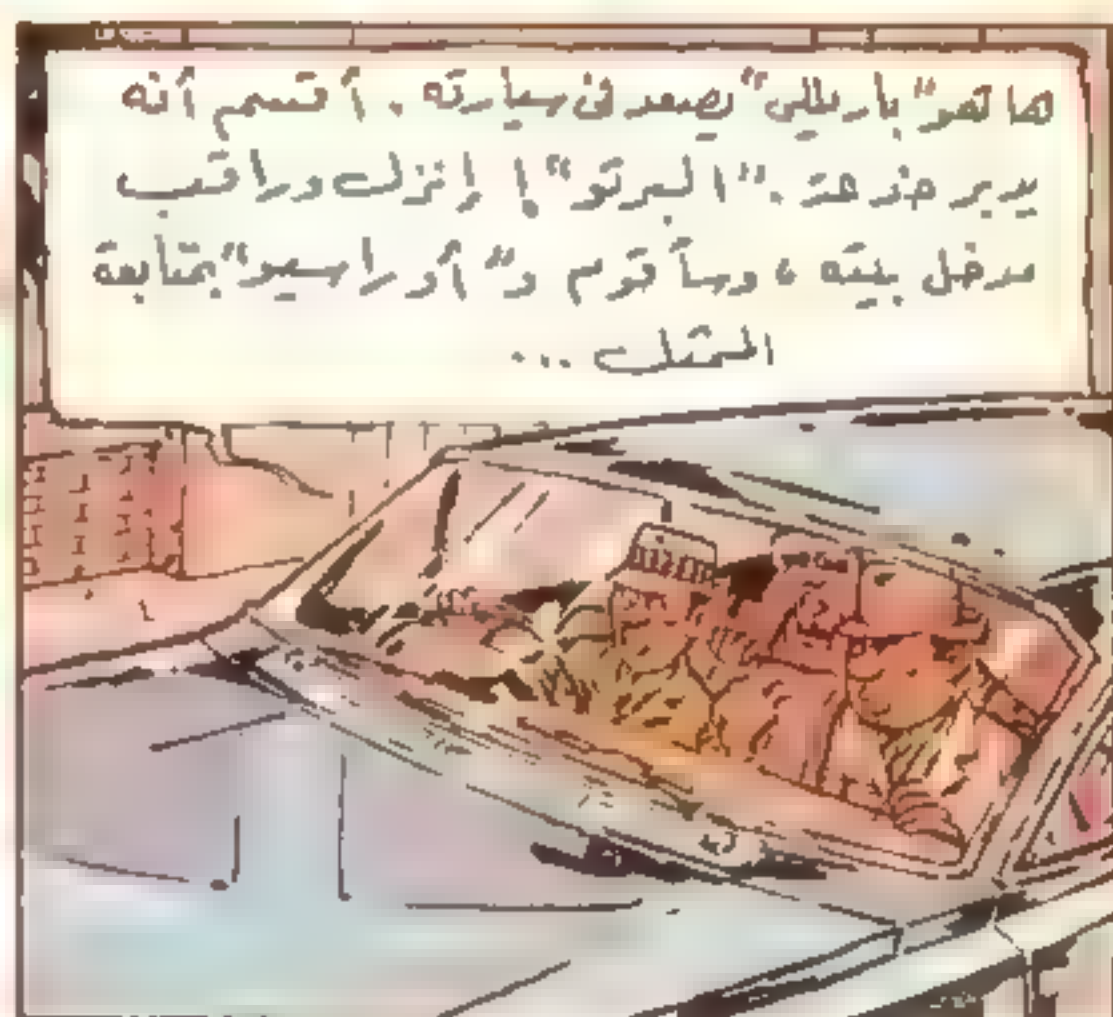 ها هو "بارىللي" يصعد فى سيارته . أقسم أنه
يدبر خدعة . "البرتو" ! إنزل وراقب
مدخل بيته ، وسأقوم و"أوراسيو" بمتابعة
الممثل ...